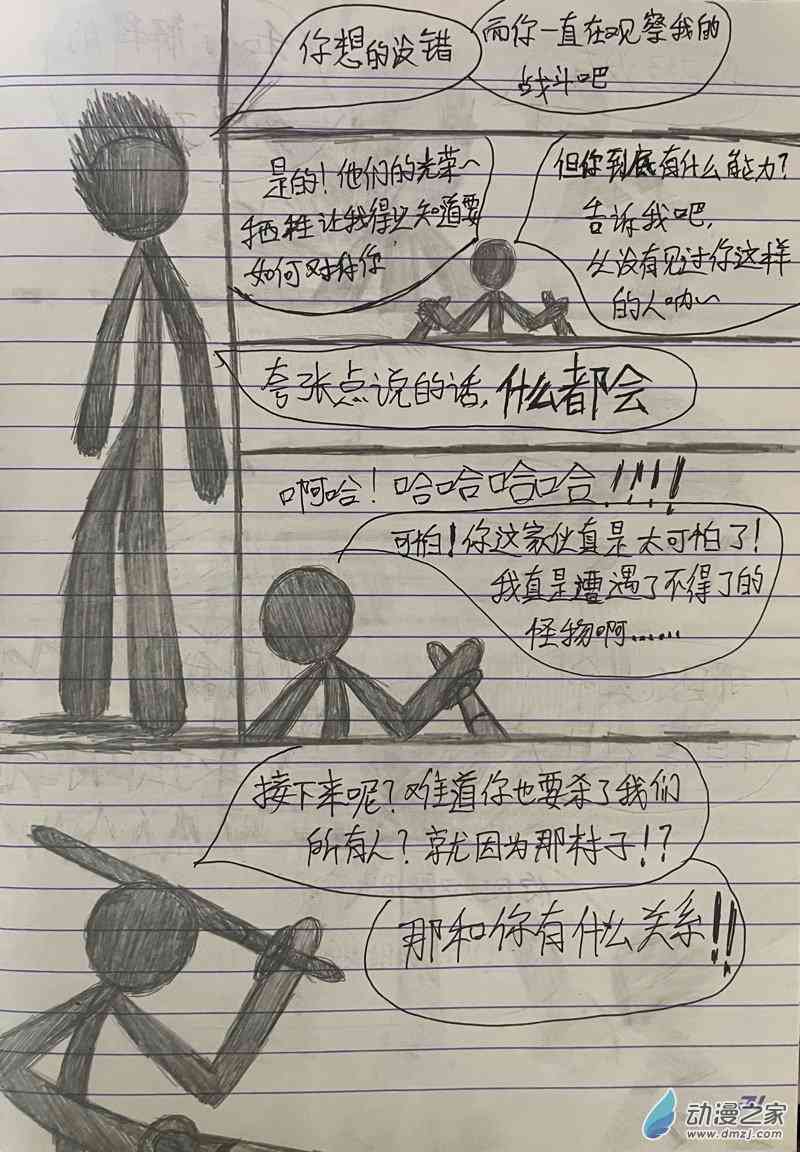 你想的没错
而你一直在观察我的
战斗吧
是的！他们的光荣～
牺牲让我得以知道要
如何对付你
但你到底有什么能力？
告诉我吧，
从没有见过你这样
的人呐～
夸张点说的话，什么都会
啊哈！哈哈哈哈！！！！
可怕！你这家伙真是太可怕了！
我真是遭遇了不得了的
怪物啊……
接下来呢？难道你也要杀了我们
所有人？就因为那村子！？
那和你有什么关系！！
动漫之家
www.dmzj.com